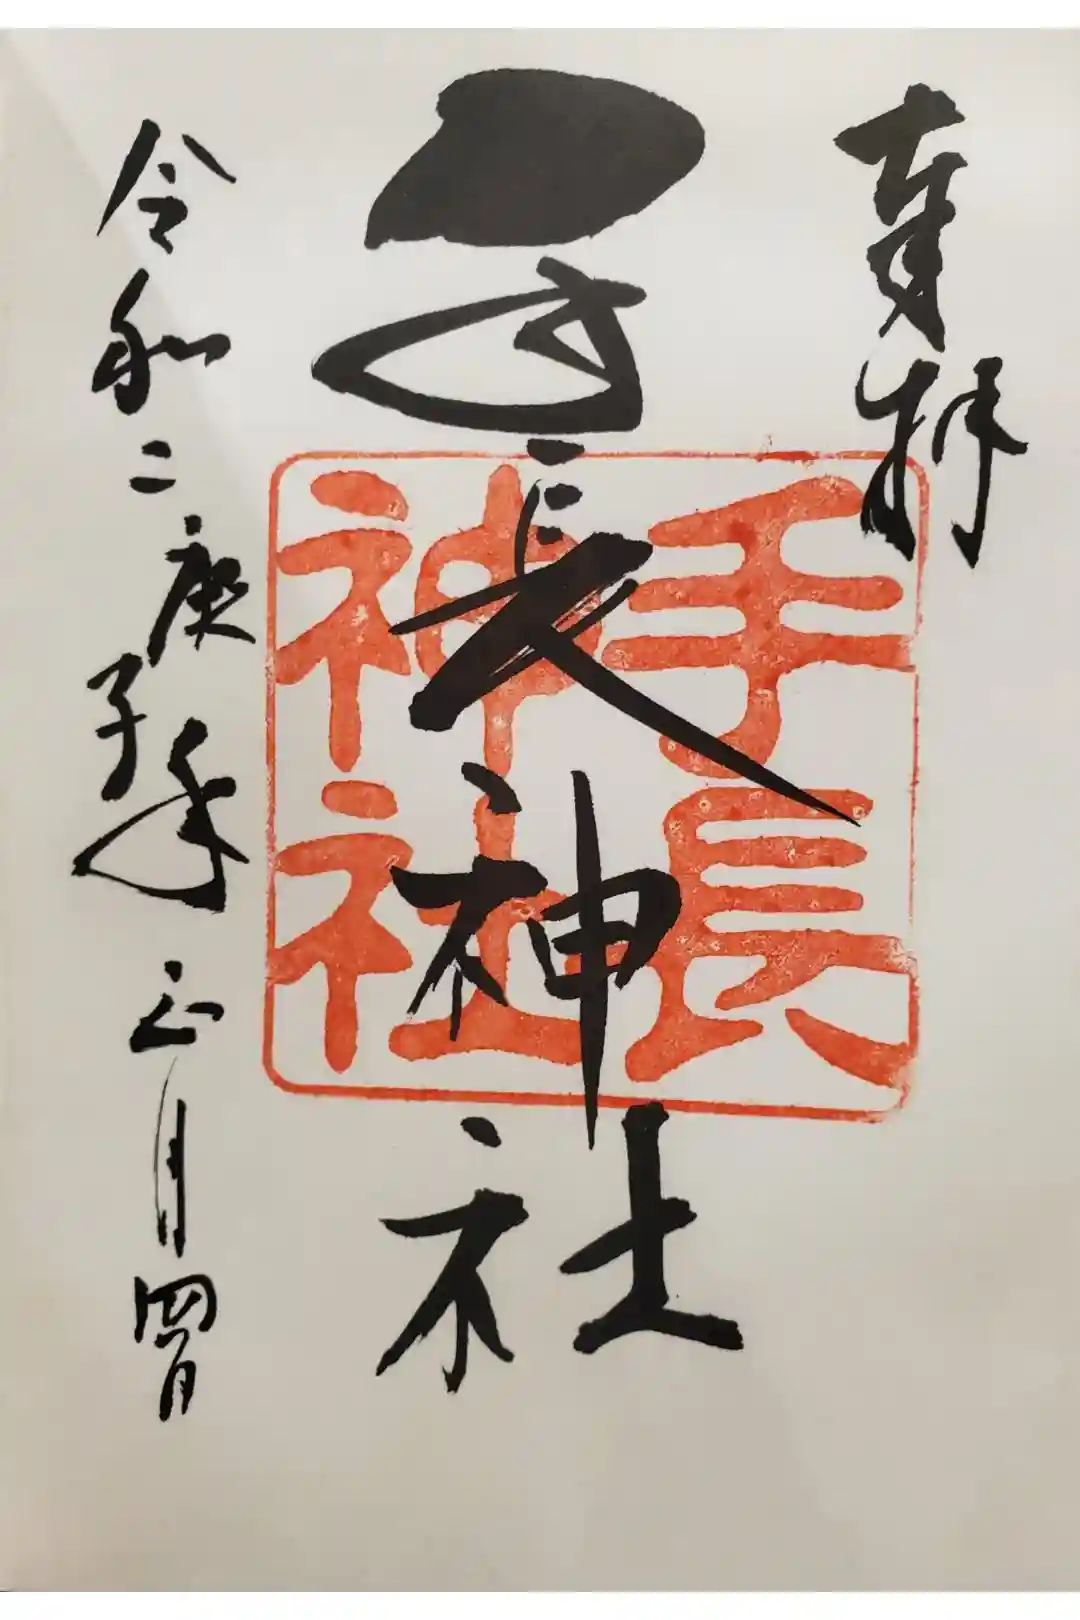 奉拝
手長神社
手長
神社
令和二庚子年正月四日